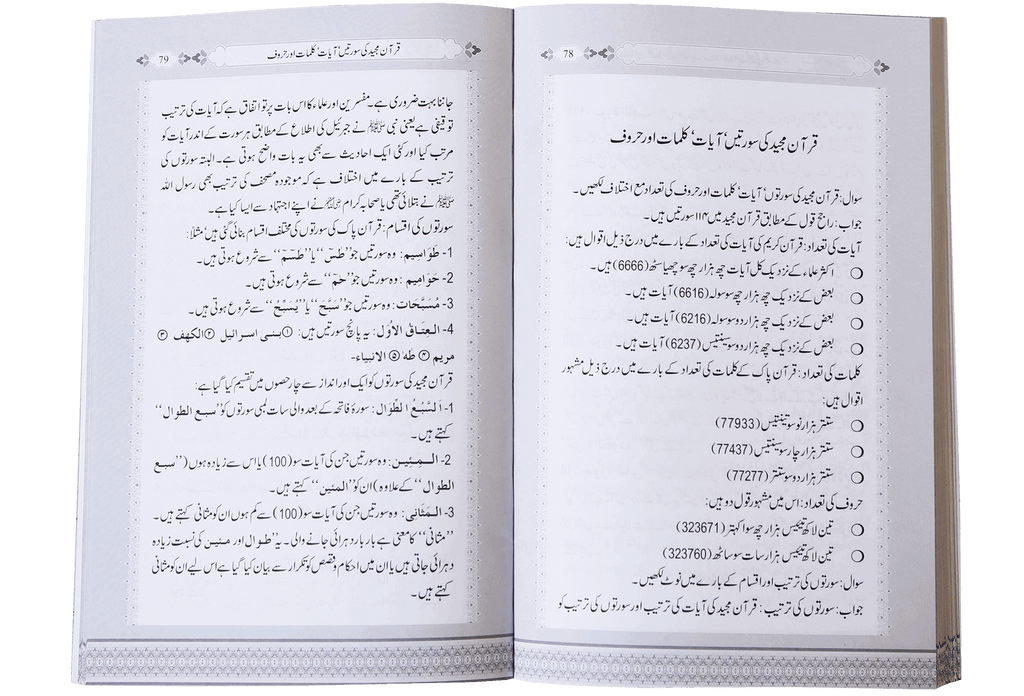 78
قرآن مجید کی سورتیں‘ آیات‘ کلمات اور حروف
سوال: قرآن مجید کی سورتوں‘ آیات‘ کلمات اور حروف کی تعداد مع اختلاف لکھیں۔
جواب: راجح قول کے مطابق قرآن مجید میں ۱۱۴ سورتیں ہیں۔
آیات کی تعداد: قرآن کریم کی آیات کی تعداد کے بارے میں درج ذیل اقوال ہیں:
❍ اکثر علماء کے نزدیک کل آیات چھ ہزار چھ سو چھیاسٹھ (6666) ہیں۔
❍ بعض کے نزدیک چھ ہزار چھ سو سولہ (6616) آیات ہیں۔
❍ بعض کے نزدیک چھ ہزار دو سو سولہ (6216) آیات ہیں۔
❍ بعض کے نزدیک چھ ہزار دو سو سینتیس (6237) آیات ہیں۔
کلمات کی تعداد: قرآن پاک کے کلمات کی تعداد کے بارے میں درج ذیل مشہور
اقوال ہیں:
❍ ستتر ہزار نو سو تینتیس (77933)
❍ ستتر ہزار چار سو سینتیس (77437)
❍ ستتر ہزار دو سو ستتر (77277)
حروف کی تعداد: اس میں مشہور قول دو ہیں:
❍ تین لاکھ تیئیس ہزار چھ سو اکہتر (323671)
❍ تین لاکھ تیئیس ہزار سات سو ساٹھ (323760)
سوال: سورتوں کی ترتیب اور اقسام کے بارے میں نوٹ لکھیں۔
جواب: سورتوں کی ترتیب: قرآن مجید کی آیات کی ترتیب اور سورتوں کی ترتیب کو
79
قرآن مجید کی سورتیں‘ آیات‘ کلمات اور حروف
جاننا بہت ضروری ہے۔ مفسرین اور علماء کا اس بات پر تو اتفاق ہے کہ آیات کی ترتیب
توقیفی ہے یعنی نبی ﷺ نے جبرئیل کی اطلاع کے مطابق ہر سورت کے اندر آیات کو
مرتب کیا اور کئی ایک احادیث سے بھی یہ بات واضح ہوتی ہے۔ البتہ سورتوں کی
ترتیب کے بارے میں اختلاف ہے کہ موجودہ مصحف کی ترتیب بھی رسول اللہ
ﷺ نے بتلائی تھی یا صحابہ کرام نے اپنے اجتہاد سے ایسا کیا ہے۔
سورتوں کی اقسام: قرآن پاک کی سورتوں کی مختلف اقسام بنائی گئی ہیں‘ مثلاً:
1- طَوَاسِیم: وہ سورتیں جو ”طٰسٓ“ یا ”طٰسٓمّٓ“ سے شروع ہوتی ہیں۔
2- حَوَامِیم: وہ سورتیں جو ”حٰمٓ“ سے شروع ہوتی ہیں۔
3- مُسَبِّحَات: وہ سورتیں جو ”سَبَّحَ“ یا ”یُسَبِّحُ“ سے شروع ہوتی ہیں۔
4- العِتَاقُ الأوَل: یہ پانچ سورتیں ہیں: ①بنی اسرائیل ②الکھف ③
مریم ④ طٰہٰ ⑤ الانبیاء۔
قرآن مجید کی سورتوں کو ایک اور انداز سے چار حصوں میں تقسیم کیا گیا ہے:
1- اَلسَّبْعُ الطِّوَال: سورۂ فاتحہ کے بعد والی سات لمبی سورتوں کو ”سبع الطوال“
کہتے ہیں۔
2- المئِین: وہ سورتیں جن کی آیات سو (100) یا اس سے زیادہ ہوں (”سبع
الطوال“ کے علاوہ) ان کو ”المئین“ کہتے ہیں۔
3- المَثَانی: وہ سورتیں جن کی آیات سو (100) سے کم ہوں ان کو مثانی کہتے ہیں۔
”مثانی“ کا معنی ہے بار بار دہرائی جانے والی۔ یہ ”طوال اور مئین کی نسبت زیادہ
دہرائی جاتی ہیں یا ان میں احکام و قصص کو تکرار سے بیان کیا گیا ہے اس لیے ان کو مثانی
کہتے ہیں۔